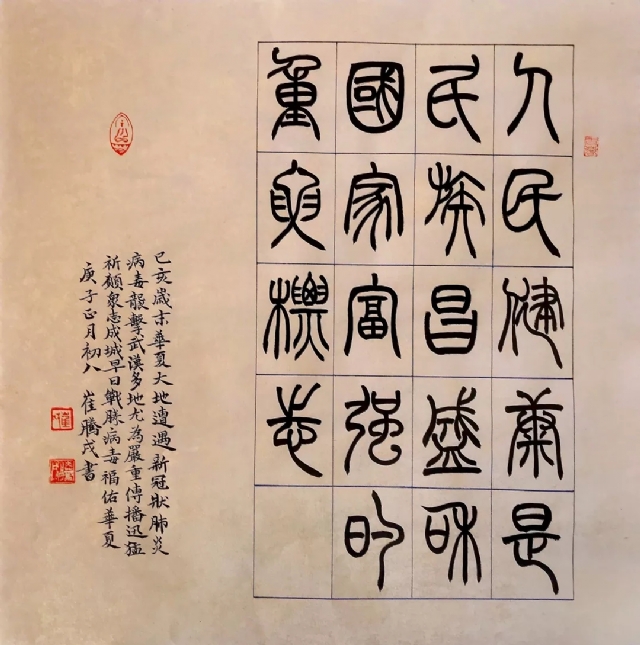 人民健康是
民族昌盛和
國家富强的
重要標志
己亥歲末華夏大地遭遇新冠狀肺炎
病毒擊武漢多地尤為嚴重傳播迅猛
祈願衆志成城早日戰勝病毒福佑華夏
庚子正月初八 崔騰書